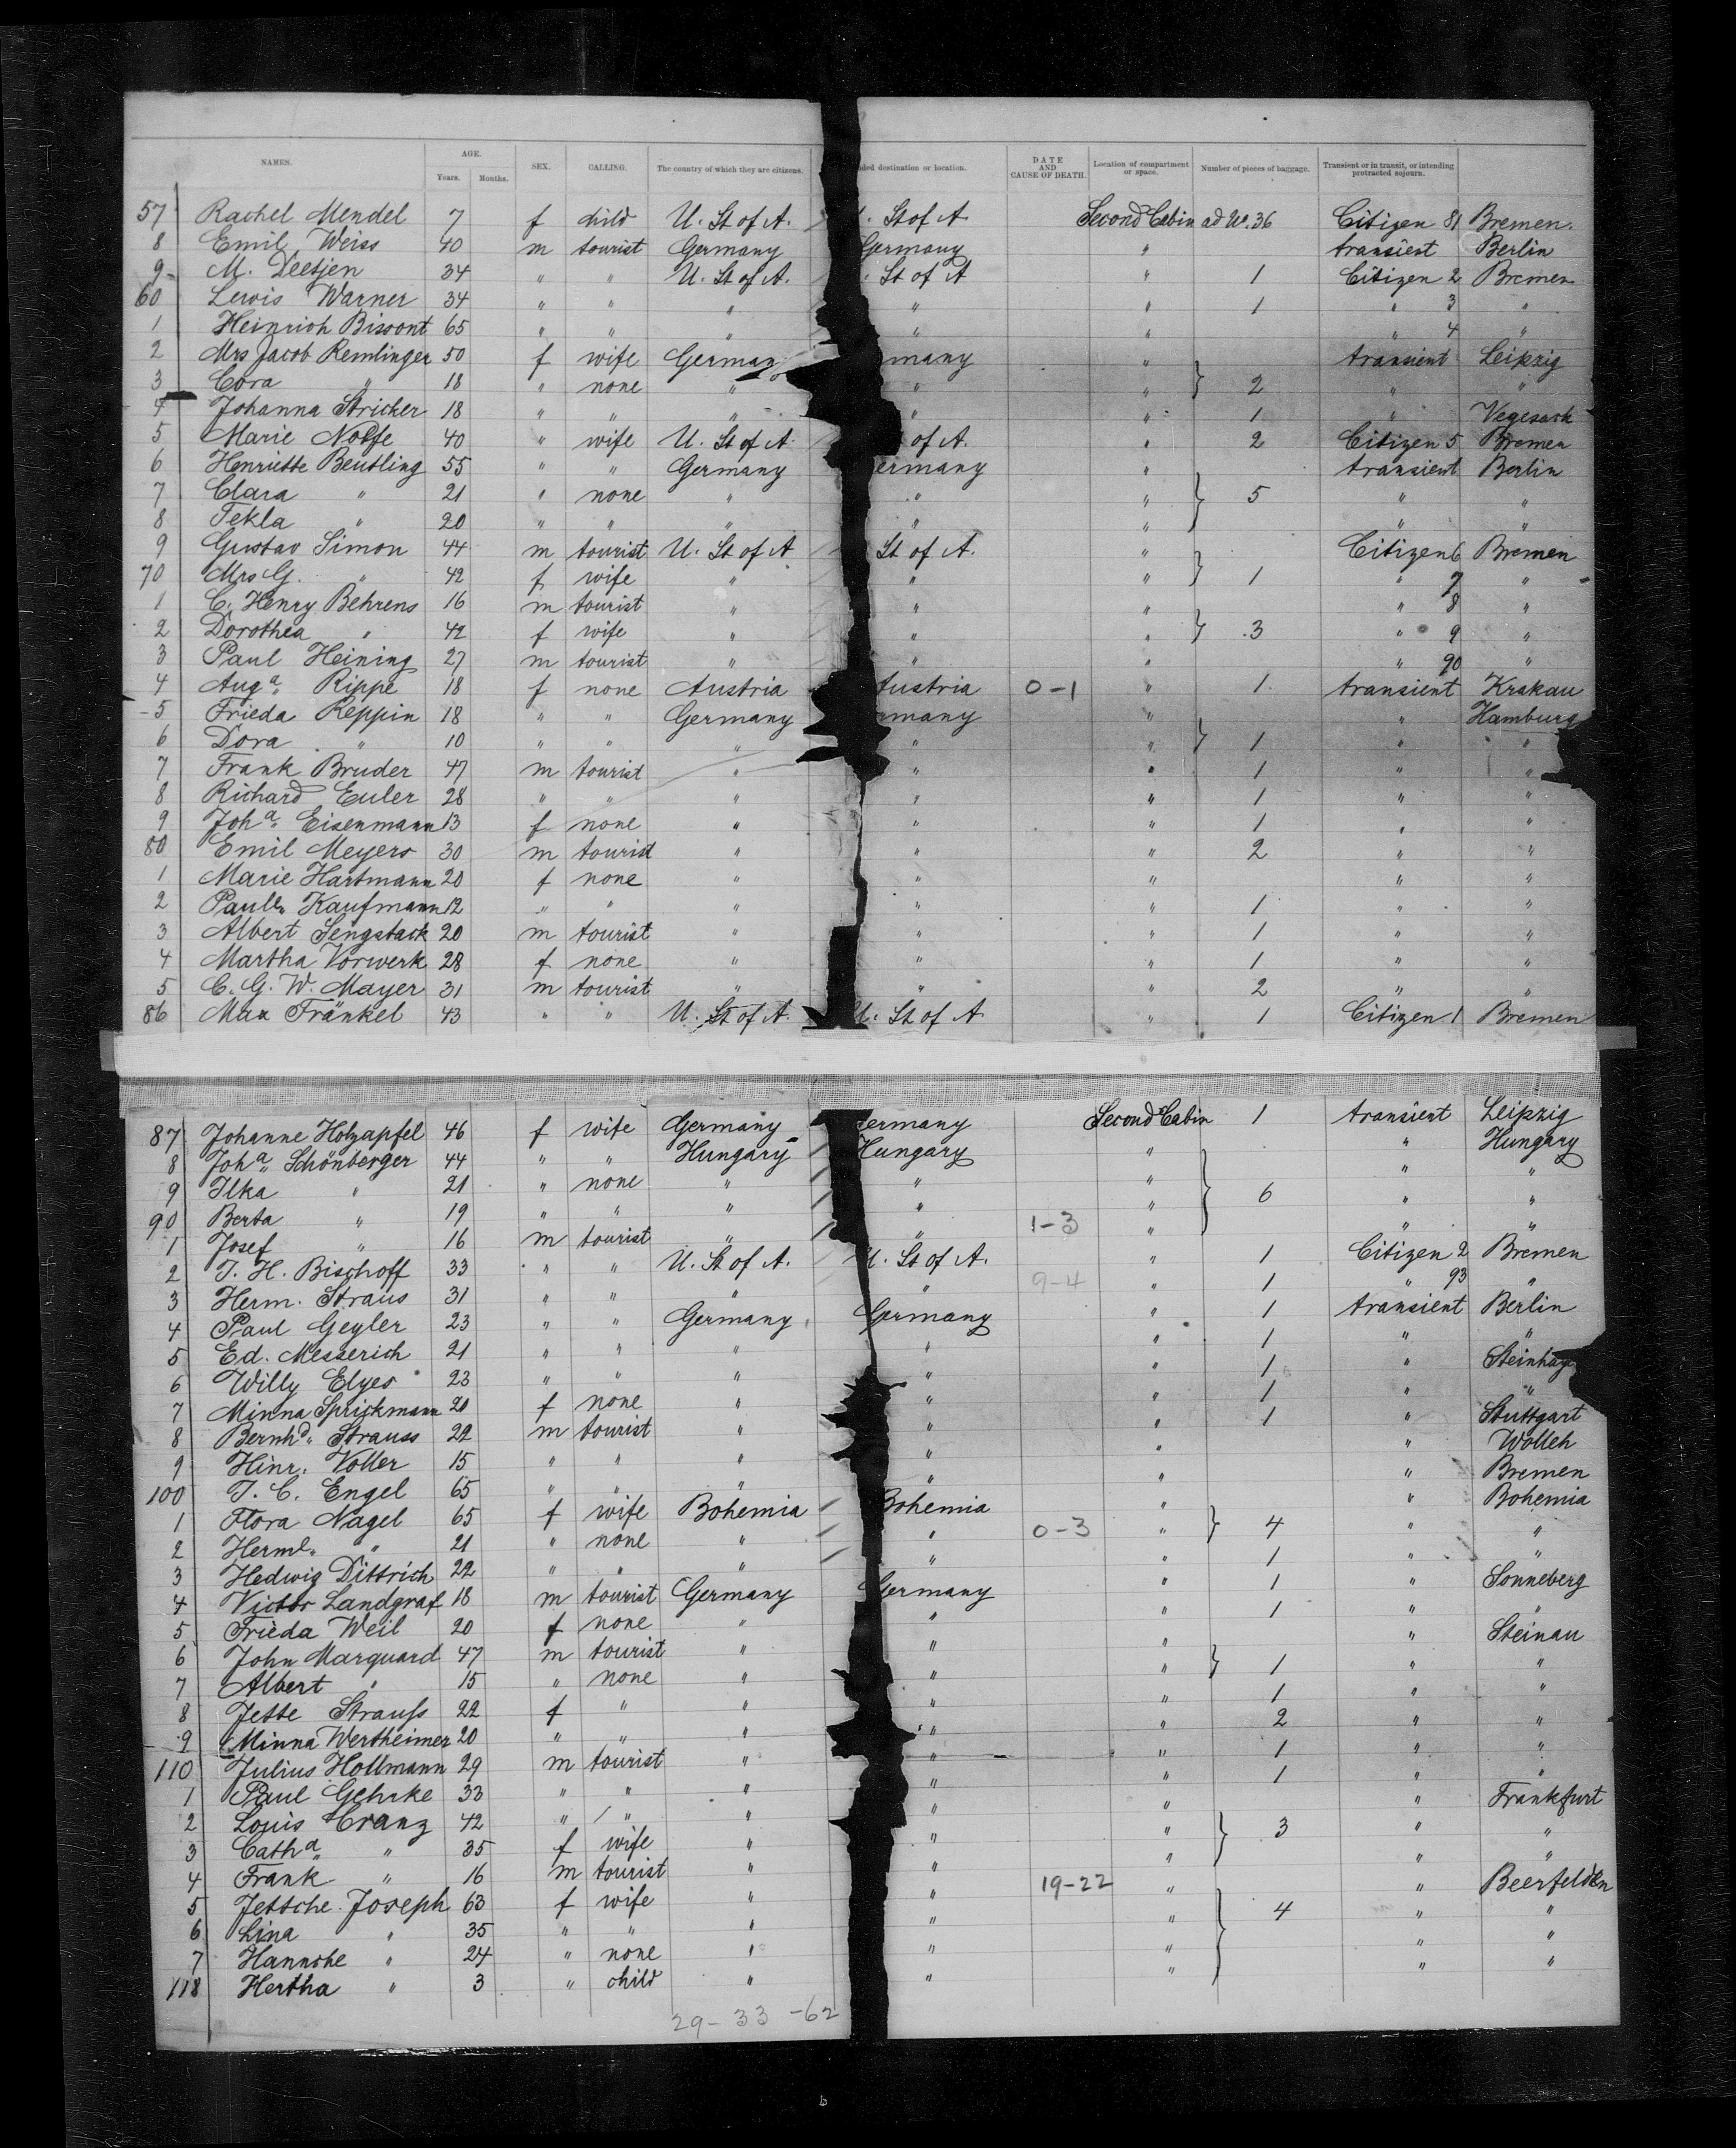 NAMES. AGE. Years. Months. SEX. CALLING. The country of which they are citizens. ded destination or location. DATE AND CAUSE OF DEATH. Location of compartment or space. Number of pieces of baggage. Transient or in transit, or intending protracted sojourn.
57 Rachel Mendel 7 f child U. St of A. . St of A Second Cabin ad No. 36 Citizen 81 Bremen.
8 Emil Weiss 40 m tourist Germany Germany " transient Berlin
9 M. Deetjen 34 " " U. St of A. . St of A " 1 Citizen 2 Bremen
60 Lewis Warner 34 " " " " " 1 " 3 "
1 Heinrich Bissont 65 " " " " " " 4 "
2 Mrs Jacob Remlinger 50 f wife German many " transient Leipzig
3 Cora " 18 " none " " " } 2 " "
4 Johanna Stricker 18 " " " " " 1 " Vegesack
5 Marie Nolfe 40 " wife U. St of A. of A. " 2 Citizen 5 Bremen
6 Henriette Beutling 55 " " Germany ermany " transient Berlin
7 Clara " 21 " none " " " } 5 " "
8 Tekla " 20 " " " " " " "
9 Gustav Simon 44 m tourist U. St of A St of A. " Citizen 6 Bremen
70 Mrs G. " 42 f wife " " " } 1 " 7 "
1 C. Henry Behrens 16 m tourist " " " " 8 "
2 Dorothea " 42 f wife " " " } 3 " 9 "
3 Paul Heining 27 m tourist " " " " 90 "
4 Auga. Rippe 18 f none Austria Austria 0-1 " 1 transient Krakau
5 Frieda Reppin 18 " " Germany rmany " " Hamburg
6 Dora " 10 " " " " " } 1 " "
7 Frank Bruder 47 m tourist " " " 1 " "
8 Richard Euler 28 " " " " " 1 " "
9 Joha. Eisenmann 13 f none " " " 1 " "
80 Emil Meyers 30 m tourist " " " 2 " "
1 Marie Hartmann 20 f none " " " " "
2 Paule. Kaufmann 12 " " " " " 1 " "
3 Albert Sengstack 20 m tourist " " " 1 " "
4 Martha Vorwerk 28 f none " " " 1 " "
5 C. G. W. Mayer 31 m tourist " " " 2 " "
86 Max Fränkel 43 " " U. St of A. U. St of A " 1 Citizen 1 Bremen
87 Johanne Holzapfel 46 f wife Germany Germany Second Cabin 1 transient Leipzig
8 Joha. Schönberger 44 " " Hungary Hungary " " Hungary
9 Ilka " 21 " none " " " } 6 " "
90 Berta " 19 " " " " " " "
1 Josef " 16 m tourist " " 1-3 " " "
2 J. H. Bischoff 33 " " U. St of A. U. St of A. " 1 Citizen 2 Bremen
3 Herm. Straus 31 " " " " 9-4 " 1 " 93 "
4 Paul Geyler 23 " " Germany Germany " 1 transient Berlin
5 Ed. Messerich 21 " " " " " 1 " "
6 Willy Elyes 23 " " " " " 1 " Steinhag
7 Minna Sprickmann 20 f none " " " 1 " "
8 Bernhd. Strauss 22 m tourist " " " 1 " Stuttgart
9 Hinr. Voller 15 " " " " " " Wolleh
100 J. C. Engel 65 " " " " " " Bremen
1 Flora Nagel 65 f wife Bohemia Bohemia " " Bohemia
2 Herml. " 21 " none " " 0-3 " } 4 " "
3 Hedwig Dittrich 22 " " " " " 1 " "
4 Victor Landgraf 18 m tourist Germany Germany " 1 " Sonneberg
5 Frieda Weil 20 f none " " " 1 " "
6 John Marquard 47 m tourist " " " " Steinau
7 Albert " 15 " none " " " } 1 " "
8 Jette Strauss 22 f " " " " 1 " "
9 Minna Wertheimer 20 " " " " " 2 " "
110 Julius Hollmann 29 m tourist " " " 1 " "
1 Paul Gehrke 33 " " " " " 1 " "
2 Louis Cranz 42 " " " " " " Frankfurt
3 Catha. " 35 f wife " " " } 3 " "
4 Frank " 16 m tourist " " " " "
5 Jettche Joseph 63 f wife " " 19-22 " " Beerfelden
6 Lina " 35 " " " " " } 4 " "
7 Hannche " 24 " none " " " " "
118 Hertha " 3 " child " " " " "
29-33-62